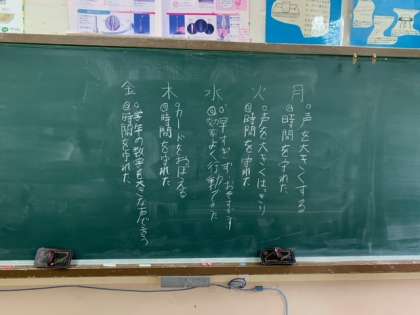 月
○声を大きくする
◎時間を守れた
火
○声を大きくはっきり
◎時間を守れた
水
○早すぎず おそすぎず
◎効率よく行動できた
木
○カードをおぼえる
◎時間を守れた
金
○学年の数字を大きな声で言う
◎時間を守れた